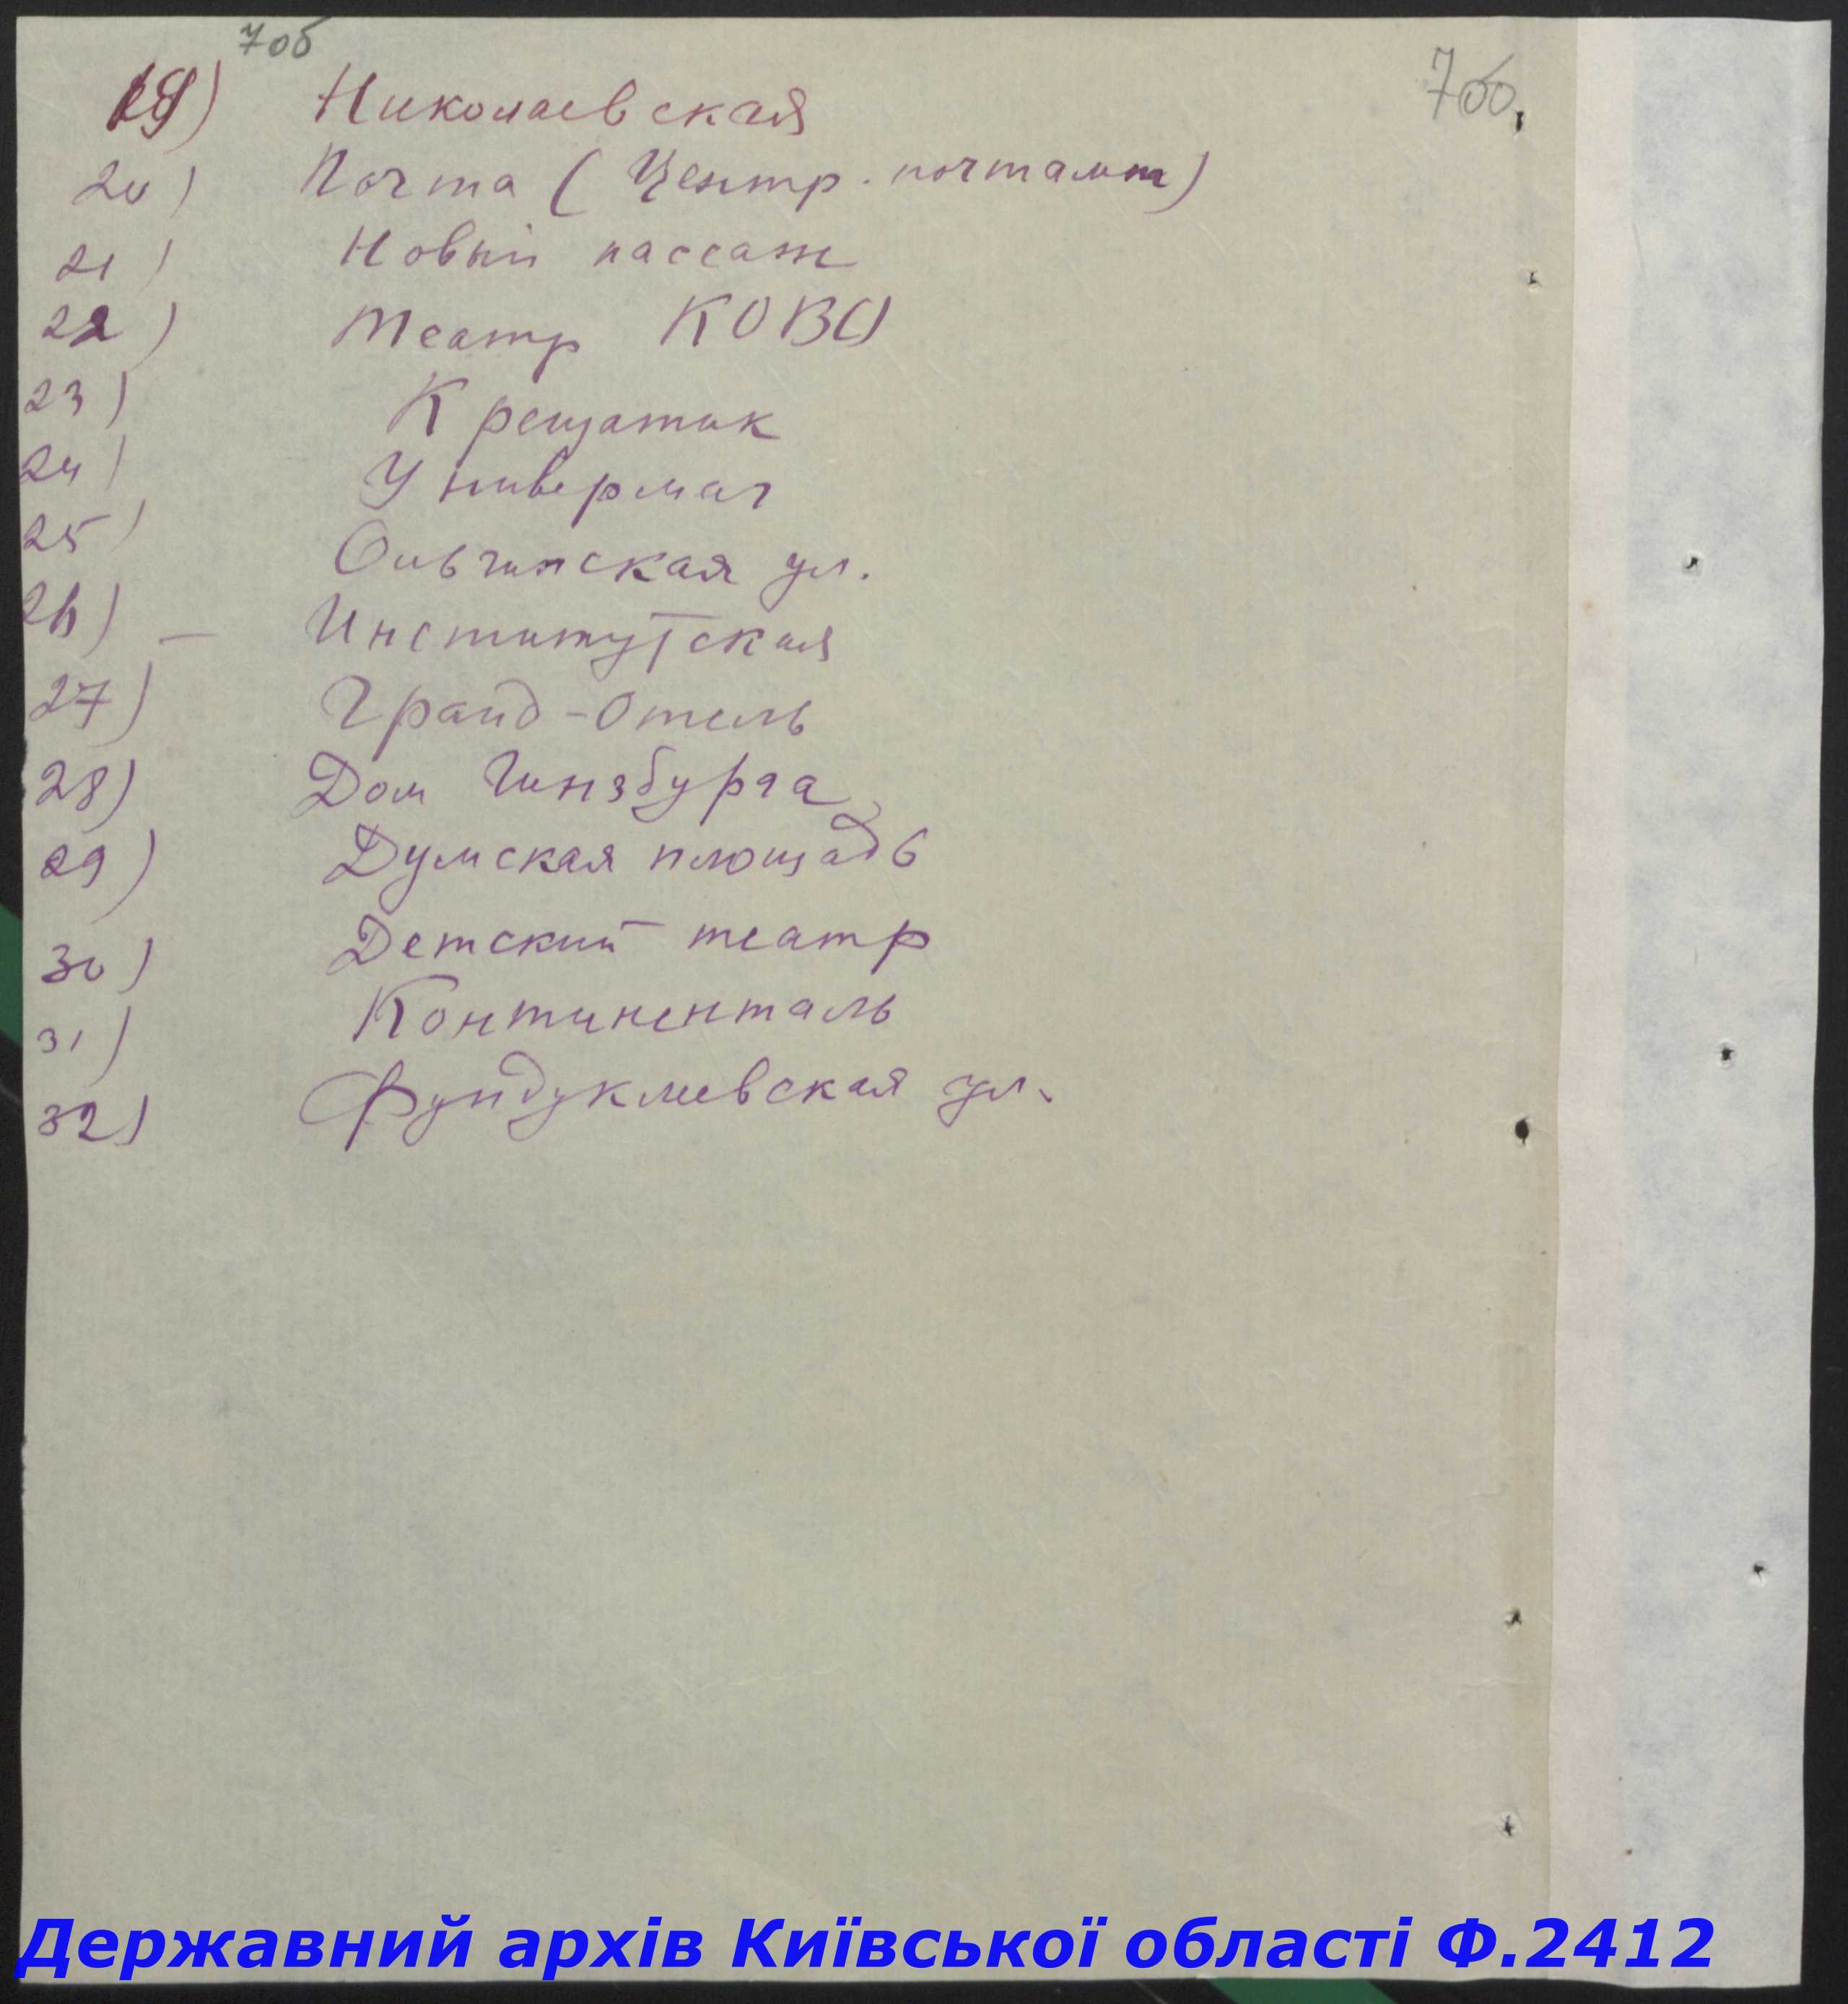 7об
19) Николаевская 7об.
20) Почта (Центр. почтамт)
21) Новый пассаж
22) Театр КОВО
23) Крещатик
24) Универмаг
25) Ольгинская ул.
26) — Институтская
27) Гранд-Отель
28) Дом Гинзбурга
29) Думская площадь
30) Детский театр
31) Континенталь
32) Фундуклеевская ул.
Державний архів Київської області Ф.2412